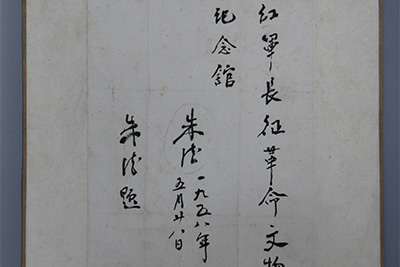 红軍長征革命文物
纪念舘
朱德
一九五八年
五月廿八日
朱德题